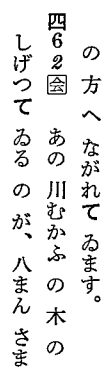 の方へながれてゐます。
四62会 あの川むかふの木の
しげつてゐるのが、八まんさま